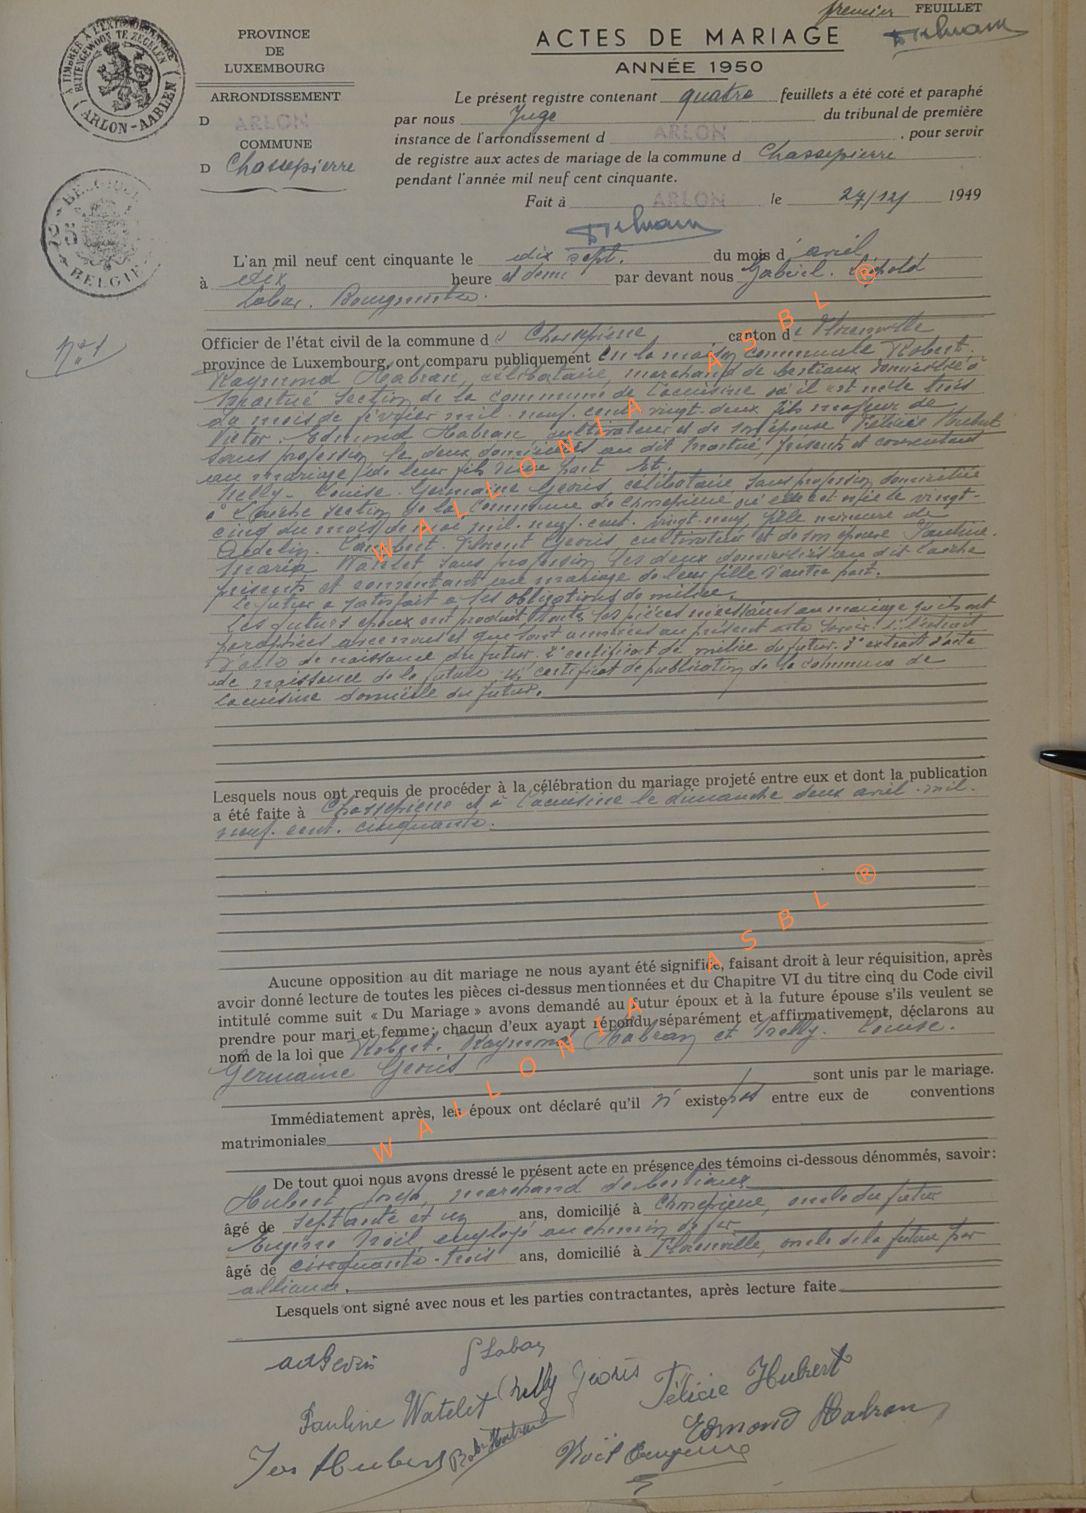 premier FEUILLET
PROVINCE
DE
LUXEMBOURG
ARRONDISSEMENT
D ARLON
COMMUNE
D Chassepierre
A TIMBRER À L'EXTRAORDINAIRE
BUITENGEWOON TE ZEGELEN
(ARLON-AARLEN)
BELGIQUE
BELGIE
ACTES DE MARIAGE
ANNÉE 1950
Le présent registre contenant quatre feuillets a été coté et paraphé
par nous Juge du tribunal de première
instance de l'arrondissement d ARLON , pour servir
de registre aux actes de mariage de la commune d Chassepierre
pendant l'année mil neuf cent cinquante.
Fait à ARLON le 27/12/ 1949
L'an mil neuf cent cinquante le dix sept. du mois d' avril
à dix heure et demi par devant nous Gabriel. Léopold
Labar. Bourgmestre.
N° 1
Officier de l'état civil de la commune d e Chassepierre canton de Florenville
province de Luxembourg, ont comparu publiquement en la maison communale Robert.
Raymond Habran, célibataire, marchand de bestiaux domicilié à
Martué section de la commune de Lacuisine où il est né le trois
du mois de février mil. neuf. cent. vingt. deux fils majeur de
Victor. Edmond Habran cultivateur et de son épouse Félicie Hubert
sans profession les deux domiciliés au dit Martué, présents et consentant
au mariage de leur fils d'une part. Et.
Nelly. Louise. Germaine Georis célibataire sans profession domiciliée
à Laiche section de la commune de Chassepierre où elle est née le vingt-
cinq du mois de mai mil. neuf. cent. vingt. neuf, fille mineure de
Adelin. Lambert. Florent Georis cultivateur et de son épouse Pauline.
Maria Watelet sans profession les deux domiciliés au dit Laiche
présents et consentant au mariage de leur fille d'autre part.
Le futur a satisfait à ses obligations de milice.
Les futurs époux ont produit toutes les pièces nécessaires au mariage qu'ils ont
paraphées avec nous et qui sont annexées au présent acte savoir: 1° l'extrait
d'acte de naissance du futur. 2° certificat de milice du futur. 3° extrait d'acte
de naissance de la future, 4° certificat de publication de la commune de
Lacuisine domicile du futur.
Lesquels nous ont requis de procéder à la célébration du mariage projeté entre eux et dont la publication
a été faite à Chassepierre et à Lacuisine le dimanche deux avril. mil.
neuf. cent. cinquante.
Aucune opposition au dit mariage ne nous ayant été signifiée, faisant droit à leur réquisition, après
avoir donné lecture de toutes les pièces ci-dessus mentionnées et du Chapitre VI du titre cinq du Code civil
intitulé comme suit « Du Mariage » avons demandé au futur époux et à la future épouse s'ils veulent se
prendre pour mari et femme; chacun d'eux ayant répondu séparément et affirmativement, déclarons au
nom de la loi que Robert. Raymond Habran et Nelly. Louise.
Germaine Georis
sont unis par le mariage.
Immédiatement après, les époux ont déclaré qu'il n' existe pas entre eux de conventions
matrimoniales
De tout quoi nous avons dressé le présent acte en présence des témoins ci-dessous dénommés, savoir:
Hubert Joseph, marchand de bestiaux
âgé de septante et un ans, domicilié à Chassepierre, oncle du futur
Eugène Noël employé au chemin de fer
âgé de cinquante-trois ans, domicilié à Florenville, oncle de la future par
alliance.
Lesquels ont signé avec nous et les parties contractantes, après lecture faite
ad Georis G Labar
Pauline Watelet Nelly Georis Félicie Hubert
Jos Hubert Robt Habran Noël Eugène Edmond Habran
WALLONIA ASBL ®
WALLONIA ASBL ®